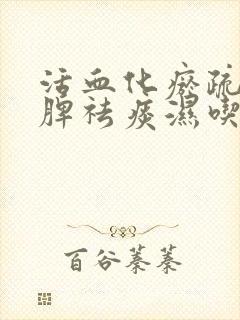 活血化瘀疏
脾祛痰濕喫
百谷蓁蓁